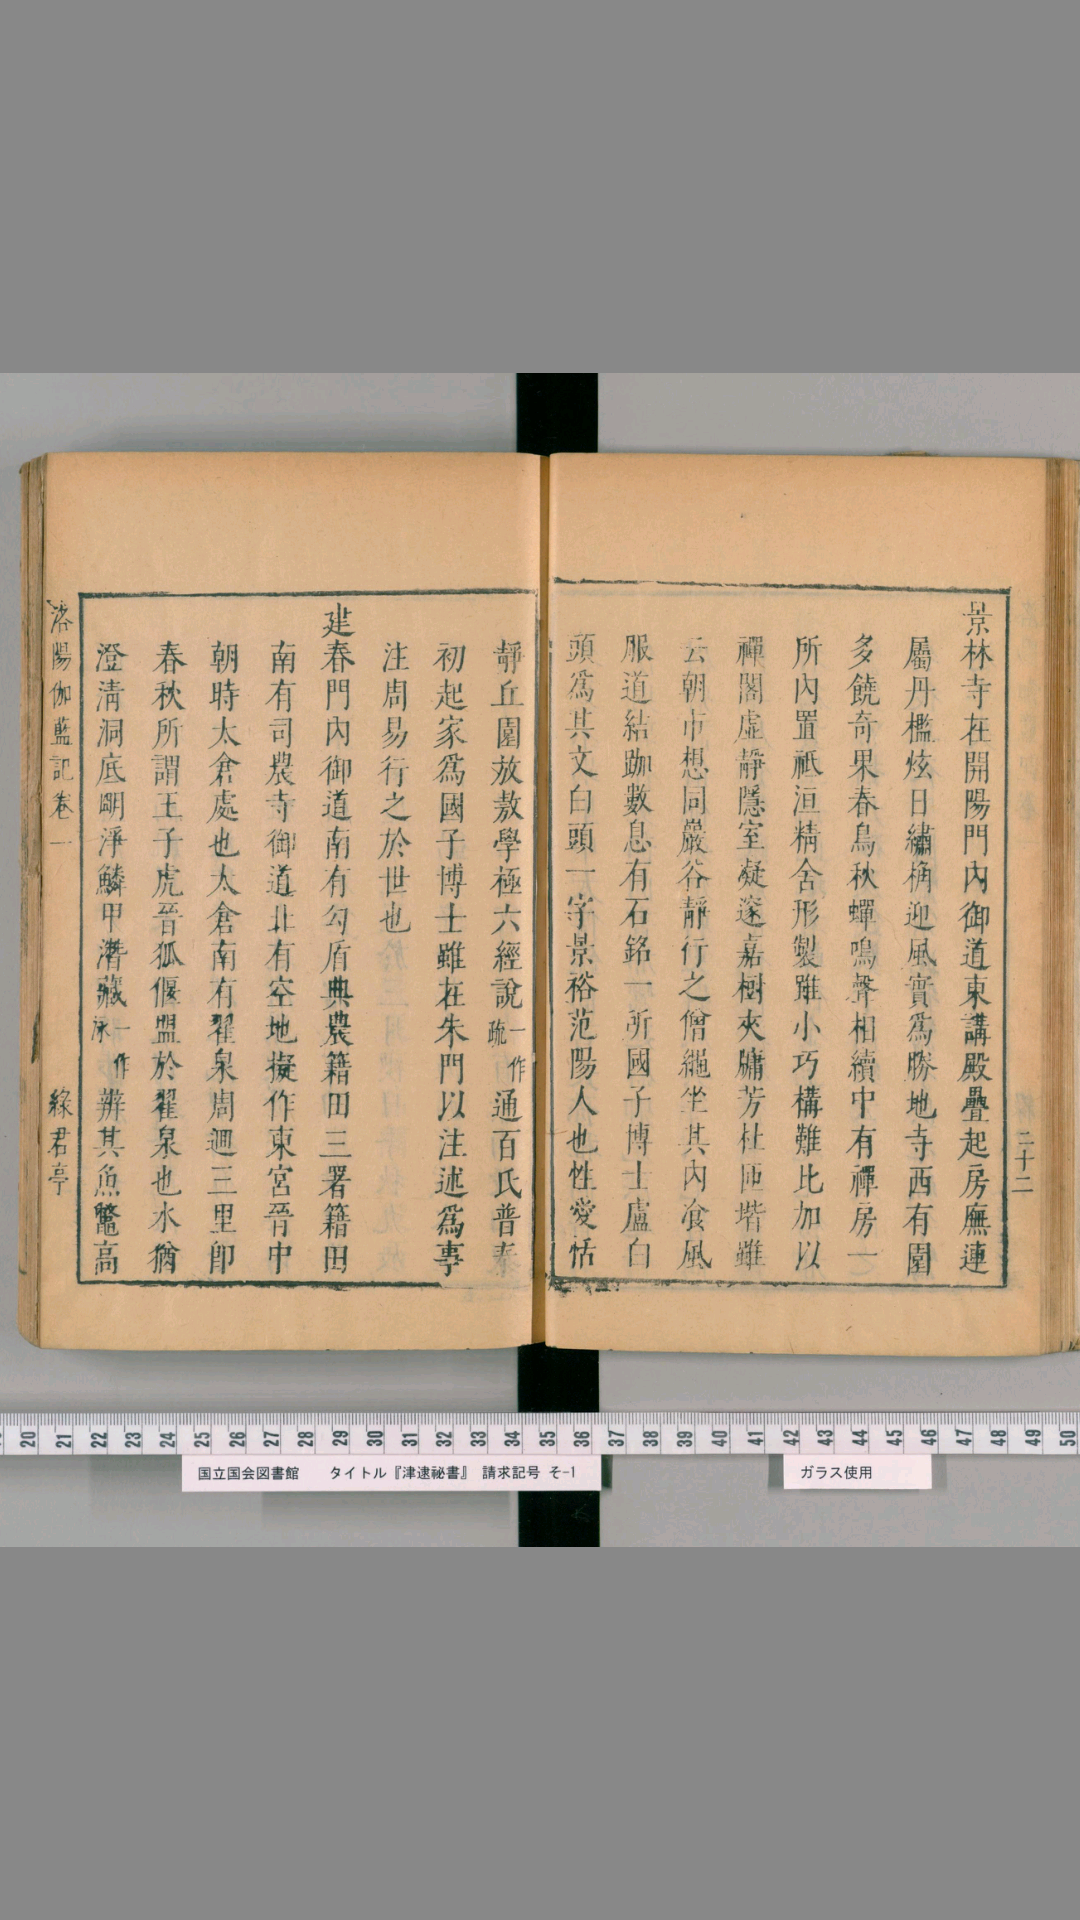 景林寺在開陽門內御道東講殿疊起房廡連
屬丹檻炫日繡桷迎風實爲勝地寺西有園
多饒奇果春鳥秋蟬鳴聲相續中有禪房一
所內置祗洹精舍形製雖小巧構難比加以
禪閣虛靜隱室凝邃嘉樹夾牖芳杜匝堦雖
云朝市想同巖谷靜行之僧繩坐其內飡風
服道結跏數息有石銘一所國子博士盧白
頭爲其文白頭一字景裕范陽人也性愛恬
二十二
靜丘園放敖學極六經說一作疏通百氏普泰
初起家爲國子博士雖在朱門以注述爲事
注周易行之於世也
建春門內御道南有勾盾典農籍田三署籍田
南有司農寺御道北有空地擬作東宮晉中
朝時太倉處也太倉南有翟泉周迴三里卽
春秋所謂王子虎晉狐偃盟於翟泉也水猶
澄淸洞底明淨鱗甲潛藏一作泳辨其魚鼈高
洛陽伽藍記卷一 綠君亭
20 21 22 23 24 25 26 27 28 29 30 31 32 33 34 35 36 37 38 39 40 41 42 43 44 45 46 47 48 49 50
国立国会図書館 タイトル『津逮祕書』 請求記号 そ-1
ガラス使用